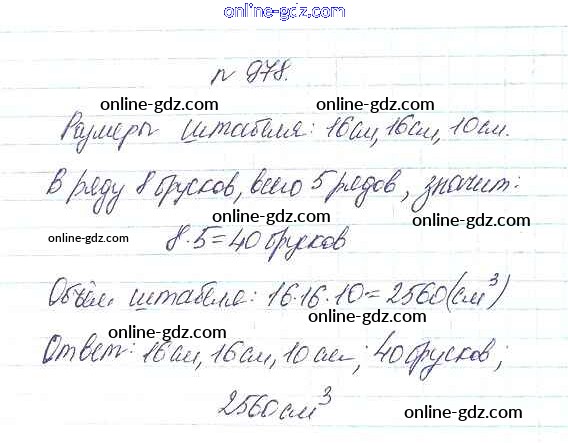 online-gdz.com
n 978.
online-gdz.com online-gdz.com
Размеры штабеля: 16см, 16см, 10см.
В ряду 8 брусков, всего 5 рядов, значит:
online-gdz.com online-gdz.com
8·5=40 брусков
online-gdz.com
Объём штабеля: 16·16·10=2560(см³)
online-gdz.com
Ответ: 16см, 16см, 10см; 40 брусков;
online-gdz.com
2560см³
online-gdz.com